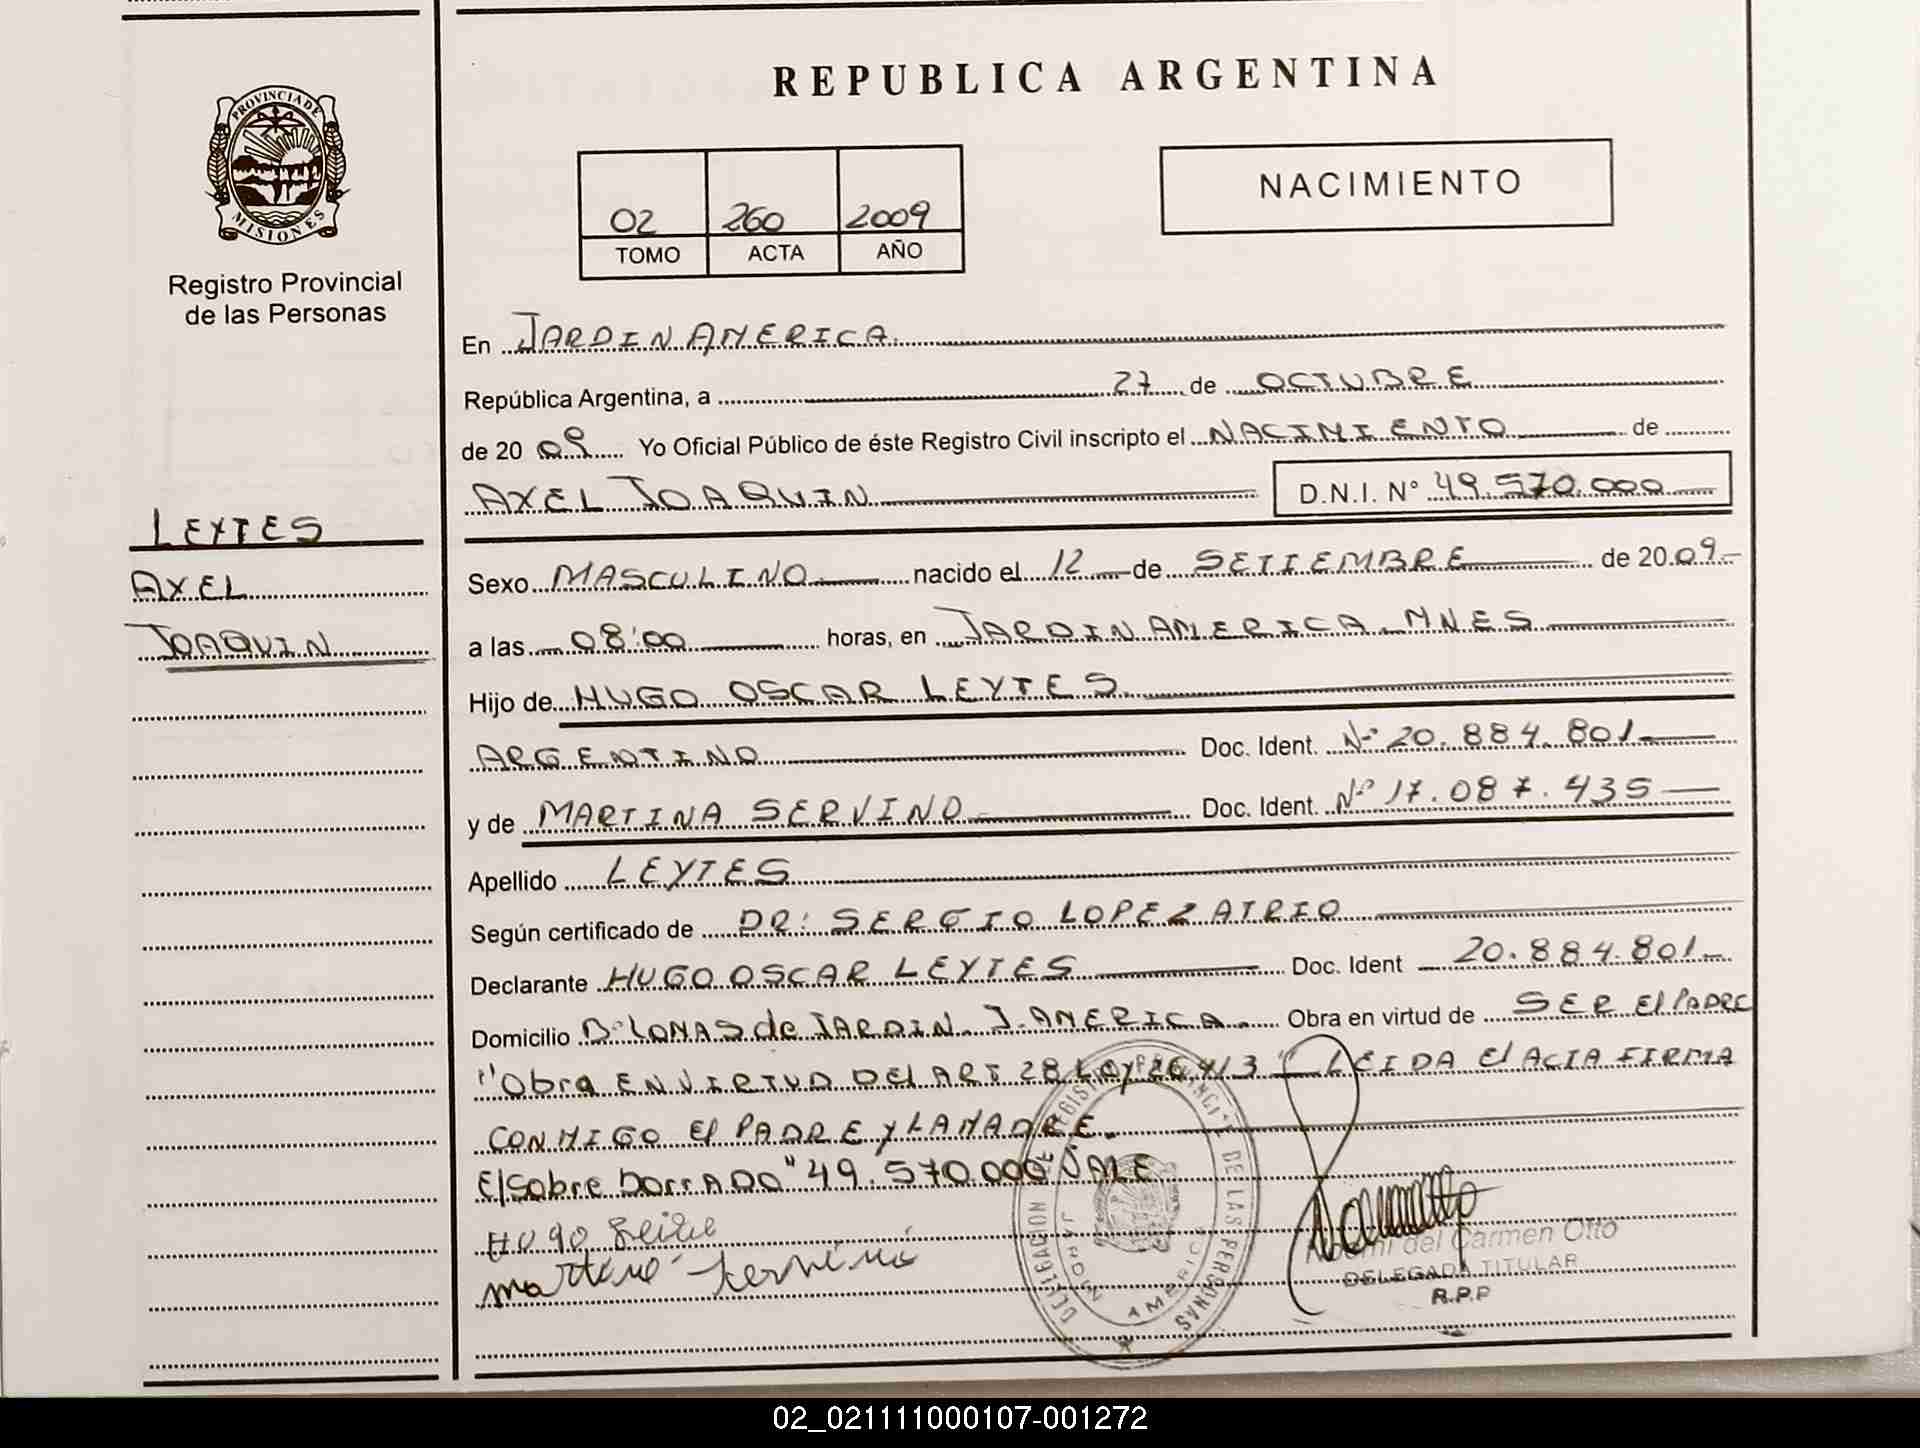 REPUBLICA ARGENTINA
PROVINCIA DE
MISIONES
Registro Provincial
de las Personas
02 260 2009
TOMO ACTA AÑO
NACIMIENTO
En JARDIN AMERICA.
República Argentina, a 27 de OCTUBRE
de 20 09 Yo Oficial Público de éste Registro Civil inscripto el NACIMIENTO de
AXEL JOAQUIN D.N.I. N° 49.570.000
LEYTES
AXEL
JOAQUIN
Sexo MASCULINO nacido el 12 de SETIEMBRE de 20 09
a las 08:00 horas, en JARDIN AMERICA. MNES
Hijo de HUGO OSCAR LEYTES
ARGENTINO Doc. Ident. N° 20.884.801
y de MARTINA SERVINO Doc. Ident. N° 17.087.435
Apellido LEYTES
Según certificado de DR: SERGIO LOPEZ ATRIO
Declarante HUGO OSCAR LEYTES Doc. Ident 20.884.801
Domicilio B° LOMAS de JARDIN J. AMERICA. Obra en virtud de SER El PADRE
"Obra EN VIRTUD DEl ART 28 Ley 26.413" LEIDA El ACTA FIRMA
CONMIGO El PADRE y LA MADRE.
El sobre borrADO "49.570.000 VALE
Hugo Leites
Martina Servino
DELEGACION DE REGISTRO PROVINCIAL DE LAS PERSONAS
JARDIN AMERICA
del Carmen Otto
DELEGADA TITULAR
R.P.P
02_021111000107-001272